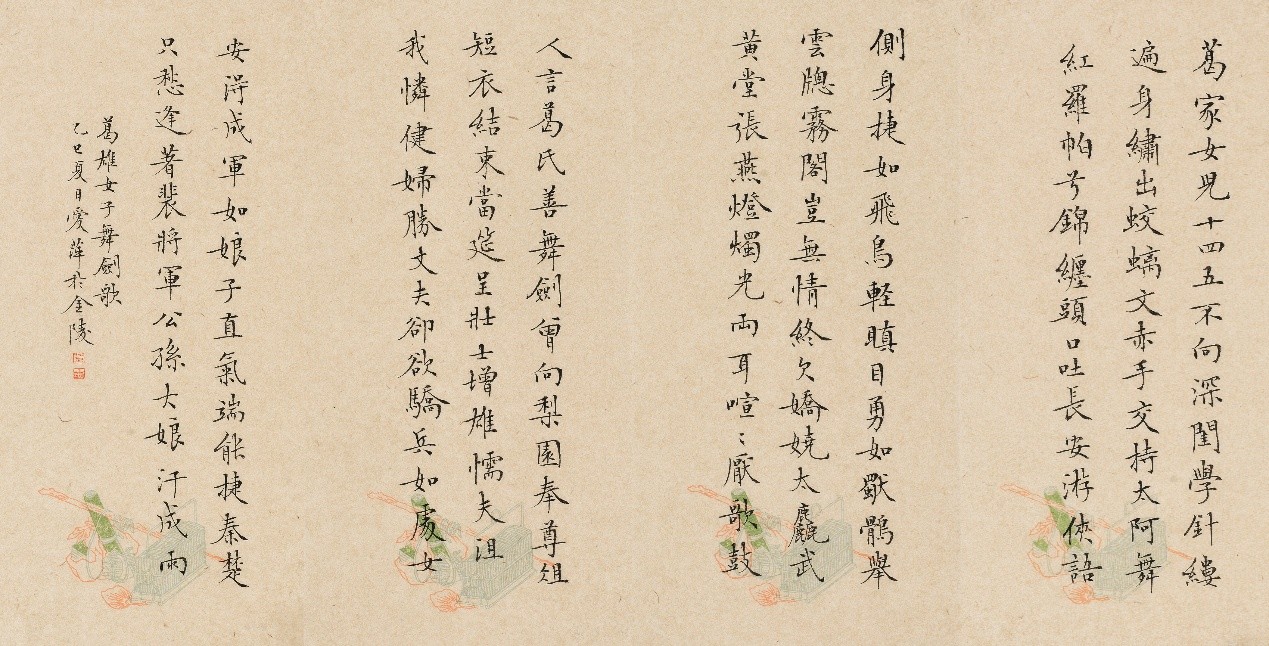 葛家女児十四五不向深閨學針縷
遍身繡出蛟螭文赤手交持太阿舞
紅羅帕兮錦纏頭口吐長安游俠語
側身捷如飛鳥軽瞋目勇如獸鶻舉
雲牕霧閣豈無情終欠嬌嬈太麤武
黄堂張燕燈燭光両耳喧〻厭歌鼓
人言葛氏善舞劍曾向梨園奉尊俎
短衣結束當筵呈壯士增雄懦夫沮
我憐健婦勝丈夫卻欲驕兵如處女
安得成軍如娘子直氣端能捷秦楚
只愁逢著裴將軍公孫大娘汗成雨
葛雄女子舞劍歌
乙巳夏日愛萍於金陵